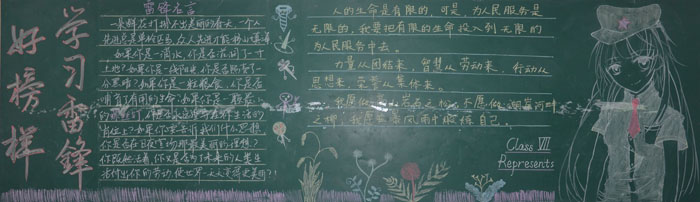 学习雷锋
好榜样
雷锋名言
一朵鲜花打扮不出美丽的春天，一个人
先进总是单枪匹马，众人先进才能移山填海。
如果你是一滴水，你是否滋润了一寸
土地？如果你是一线阳光，你是否照亮了一
分黑暗？如果你是一粒粮食，你是否
哺育了有用的生命？如果你是一颗最小
的螺丝钉，你是否永远坚守在你生活的
岗位上？如果你要告诉我们什么思想，
你是否在日夜宣扬那最美丽的理想？
你既然活着，你又是否为了未来的人类生
活付出你的劳动，使世界一天天变得更美丽？
人的生命是有限的，可是，为人民服务是
无限的，我要把有限的生命投入到无限的
为人民服务中去。
力量从团结来，智慧从劳动来，行动从
思想来，荣誉从集体来。
松，不愿做
风雨中锻炼自己。
Class VII
Represents